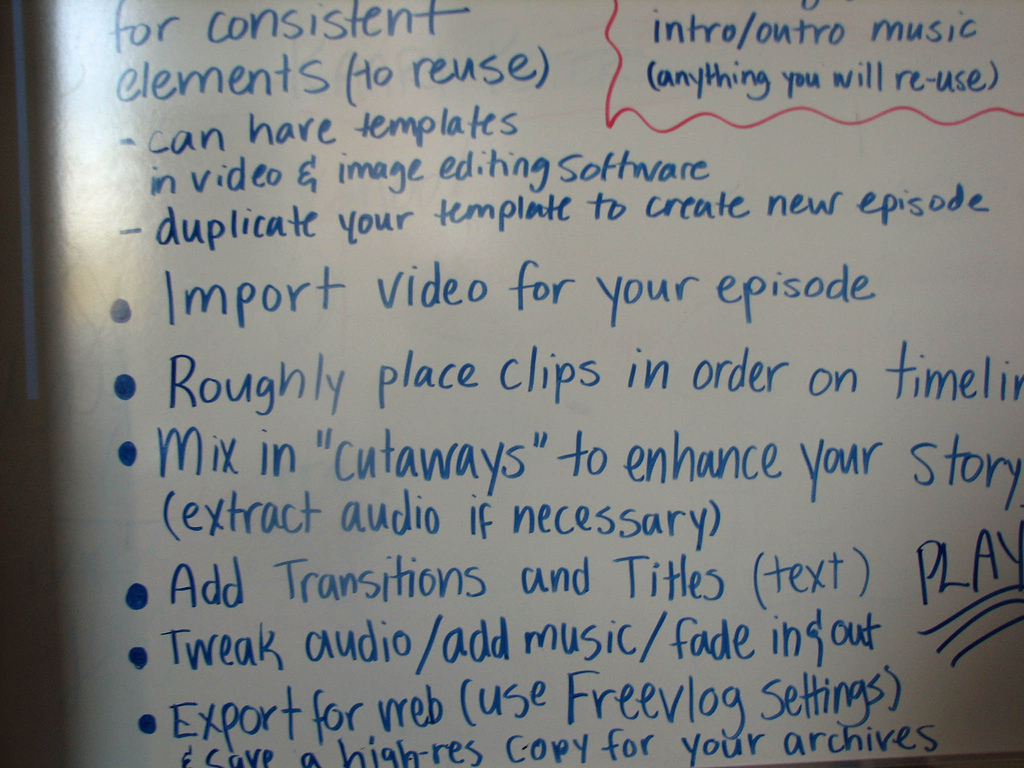 for consistent
elements (to reuse)
- can have templates
in video & image editing software
- duplicate your template to create new episode
intro/outro music
(anything you will re-use)
• Import video for your episode
• Roughly place clips in order on timelin
• Mix in "cutaways" to enhance your story
(extract audio if necessary)
• Add Transitions and Titles (text)
PLAY
• Tweak audio/add music/fade in & out
• Export for web (use Freevlog settings)
& save a high-res copy for your archives